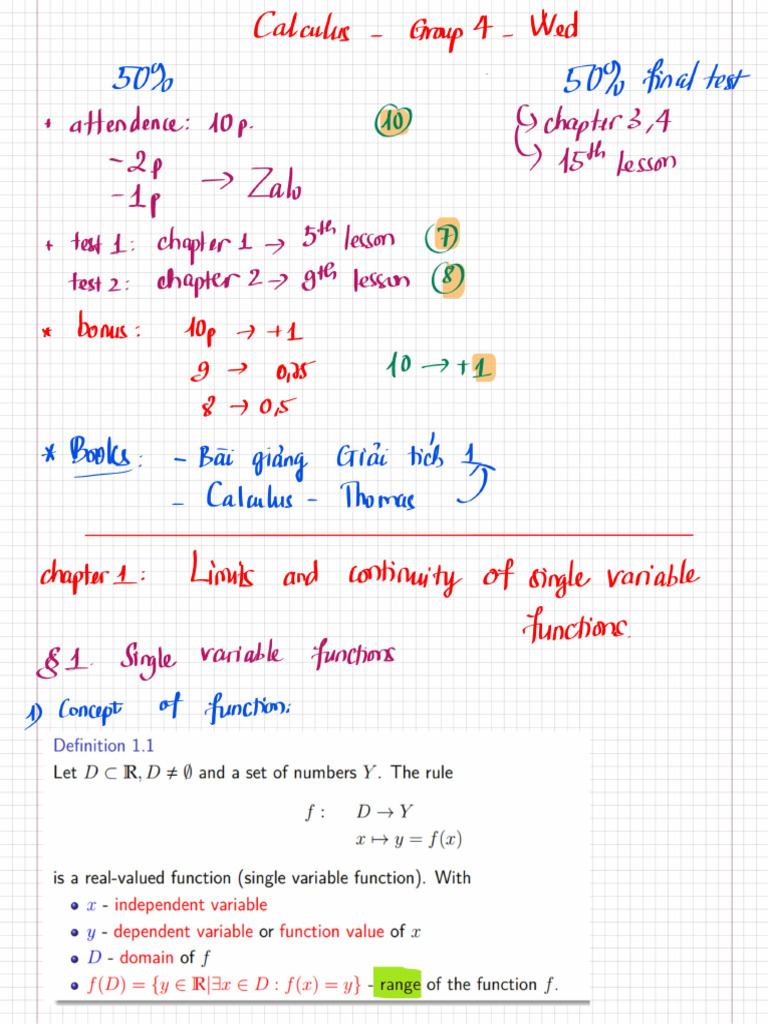 Calculus - Group 4 - Wed
50%
50% final test
+ attendence: 10p.
10
-2p
-1p
→ Zalo
↳ chapter 3,4
↳ 15th lesson
+ test 1: chapter 1 → 5th lesson 7
test 2: chapter 2 → 9th lesson 8
* bonus: 10p → +1
9 → 0,75
8 → 0,5
10 → +1
* Books: - Bài giảng Giải tích 1
- Calculus - Thomas
chapter 1: Limits and continuity of single variable
functions.
§ 1. Single variable functions
1) Concept of function:
Definition 1.1
Let D ⊂ ℝ, D ≠ ∅ and a set of numbers Y. The rule
f : D → Y
x ↦ y = f(x)
is a real-valued function (single variable function). With
• x - independent variable
• y - dependent variable or function value of x
• D - domain of f
• f(D) = {y ∈ ℝ|∃x ∈ D : f(x) = y} - range of the function f.